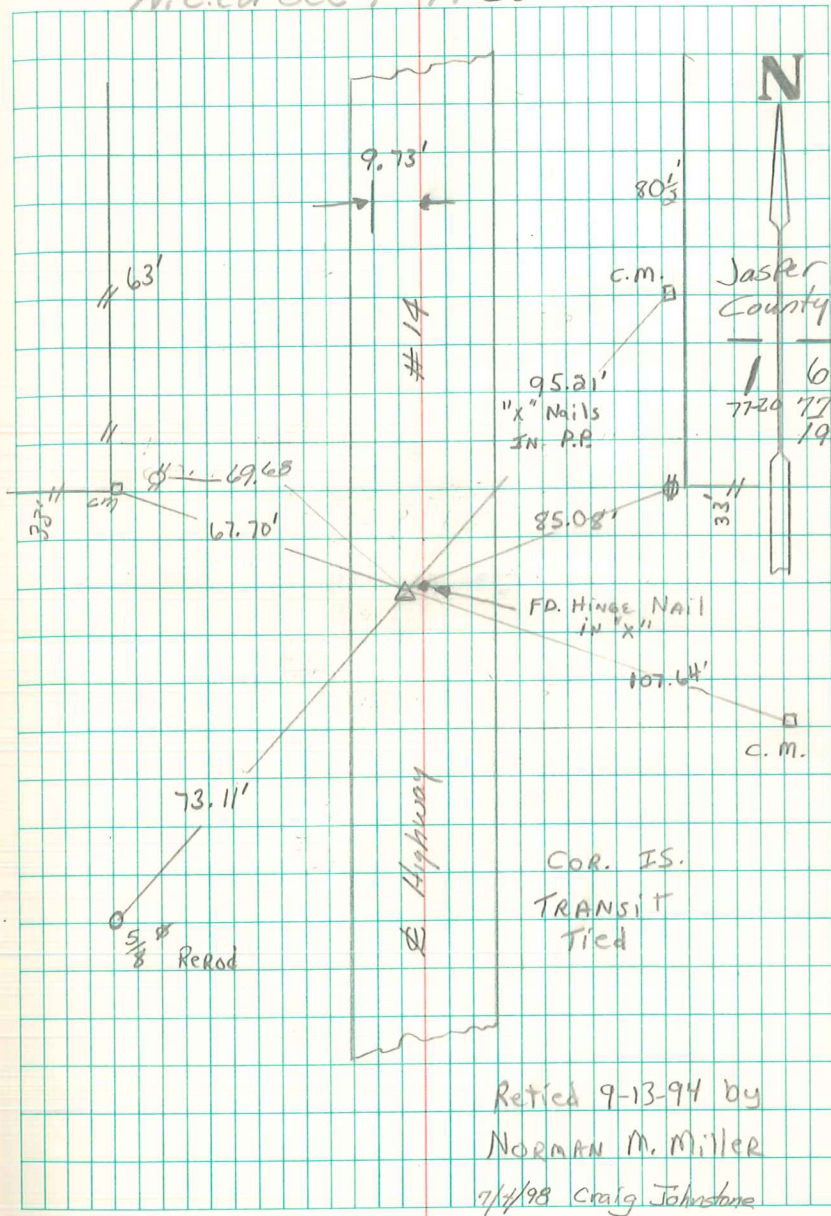 N
9.73'
80½'
63'
C.M.
Jasper
County
# 14
95.21'
"X" Nails
IN P.P.
1 6
77-20 77
19
69.68
33'
cm
67.70'
85.08'
33'
FD. HINGE NAIL
IN "X"
107.64'
C.M.
73.11'
℄ Highway
COR. IS.
TRANSIT
Tied
5/8 ø ReRod
Retied 9-13-94 by
NORMAN M. Miller
7/4/98 Craig Johnstone